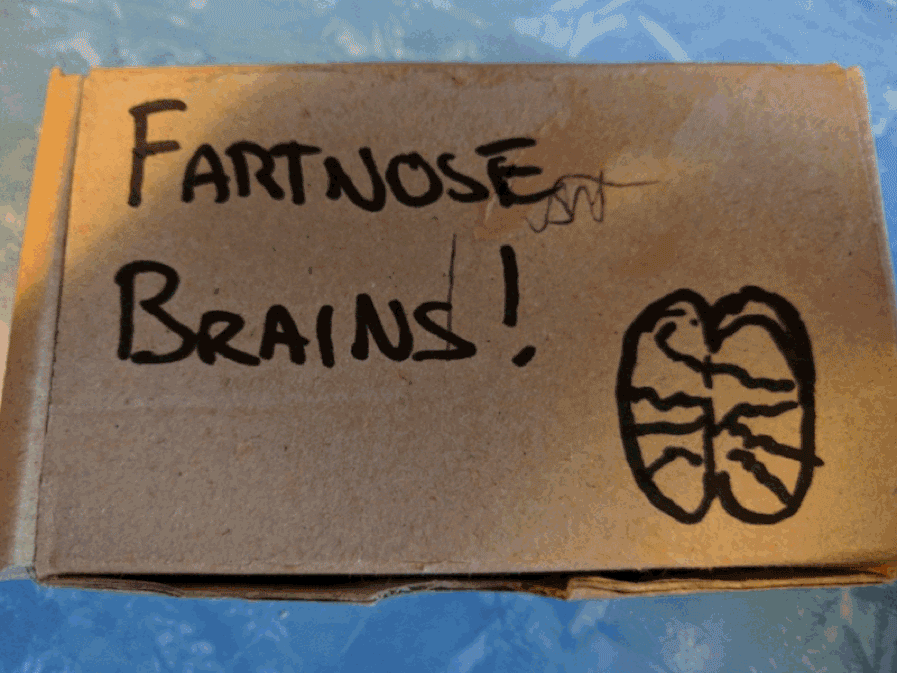 FARTNOSE
BRAINS!